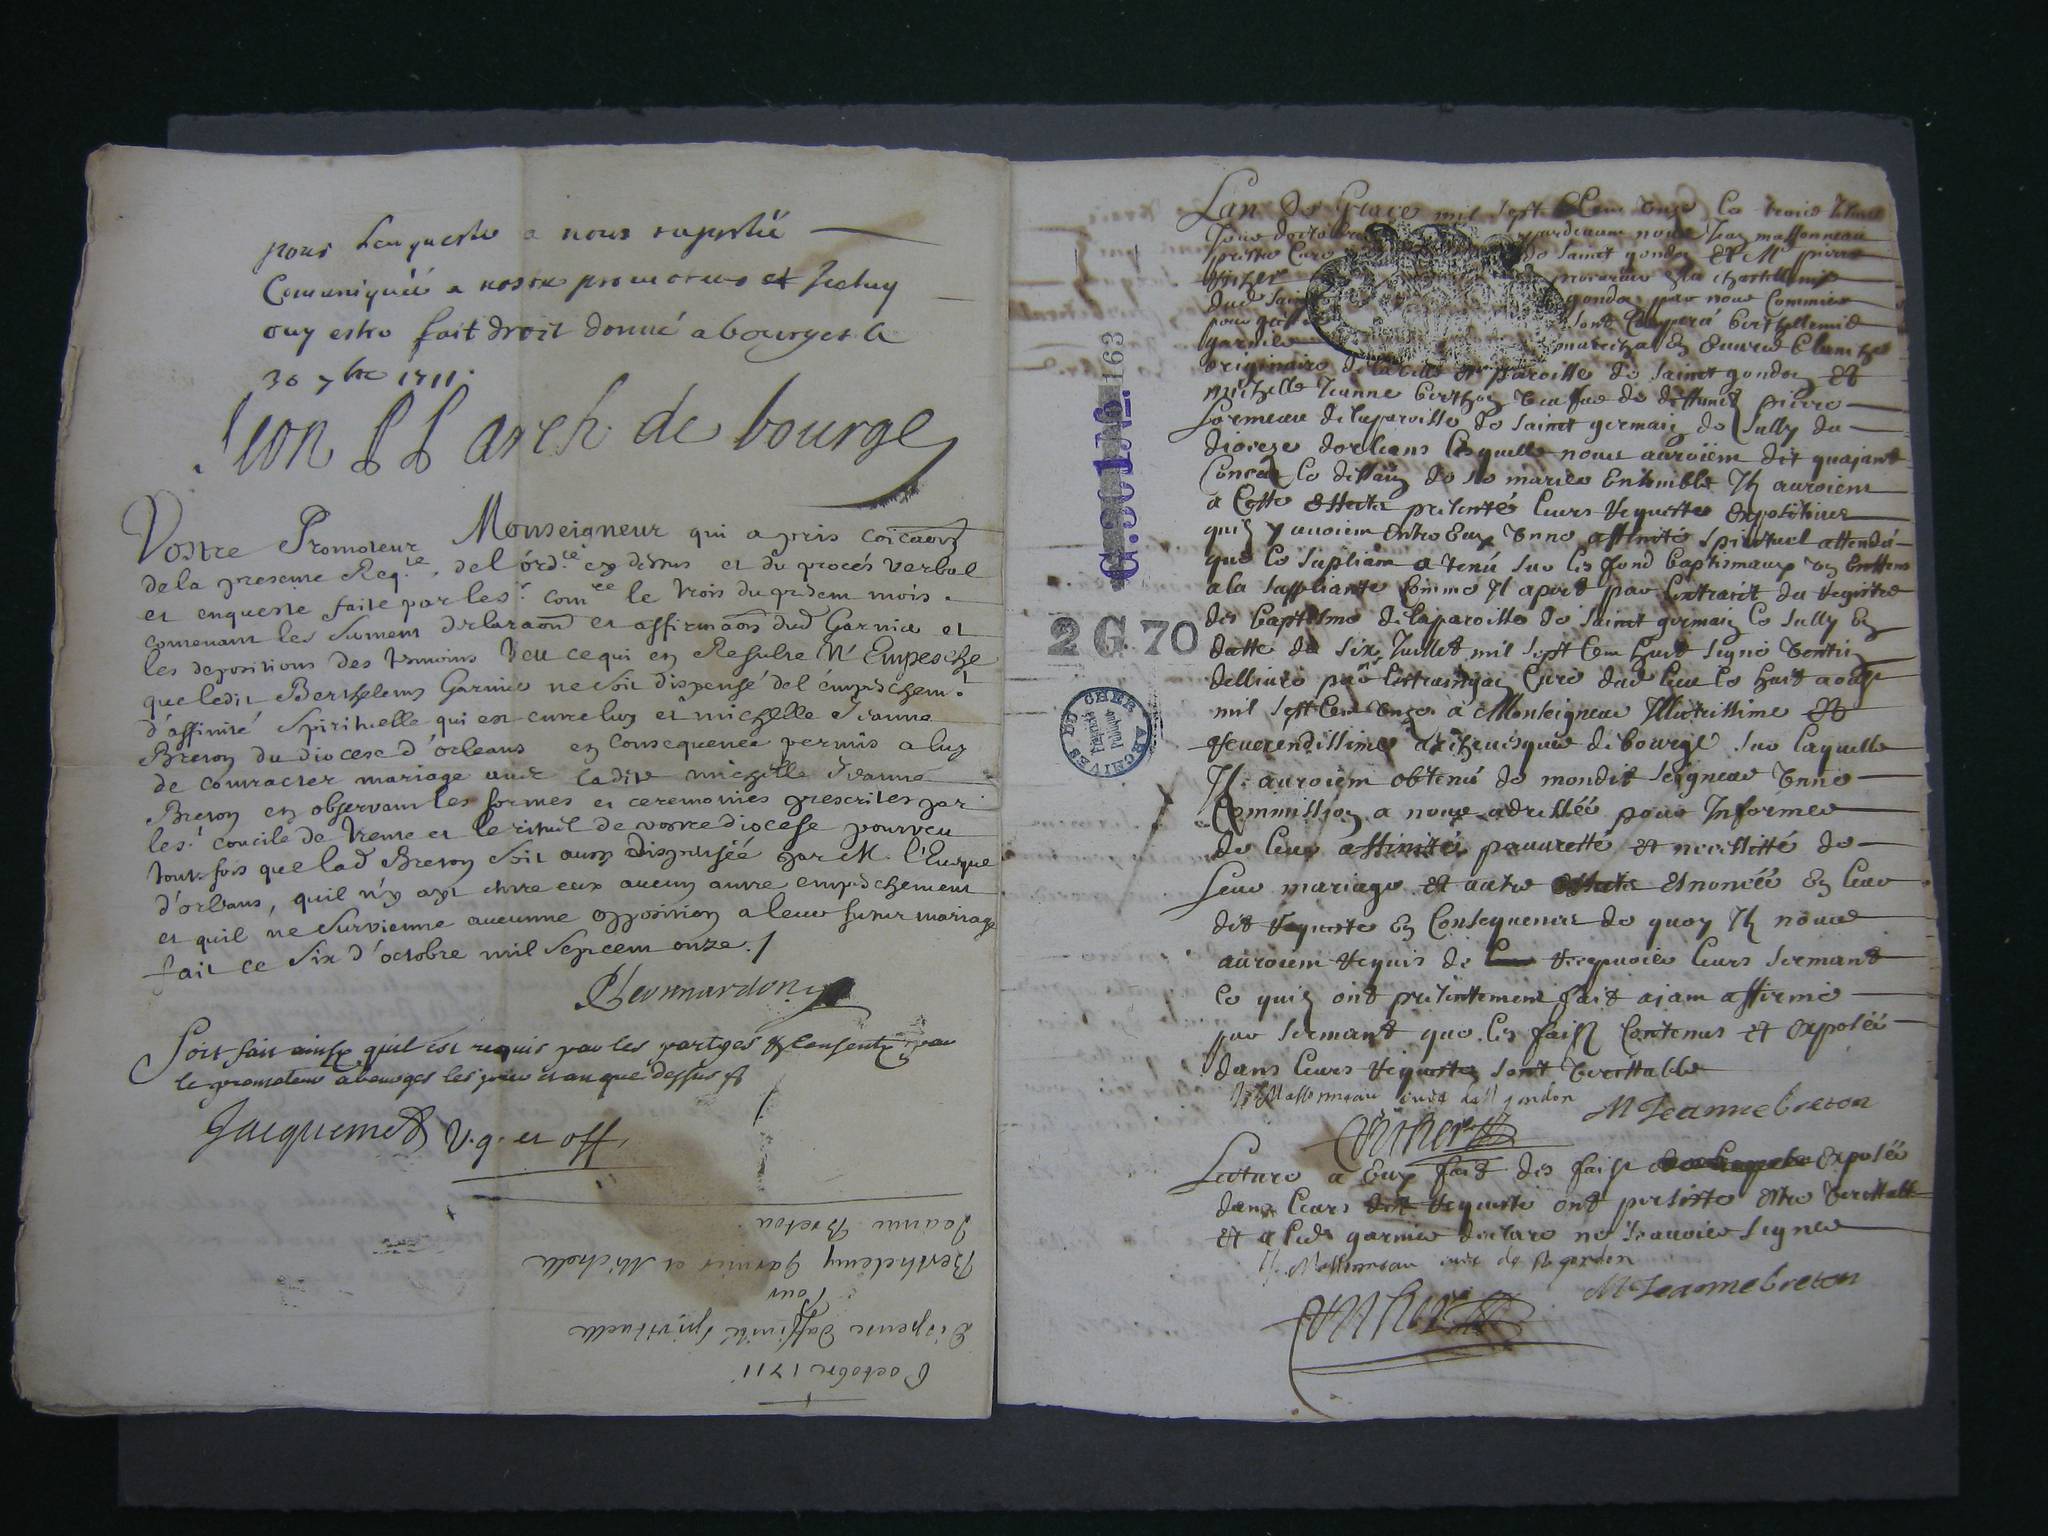 pour lenqueste a nous raportée
Comuniquée a nostre promoteur et Iceluy
ouy estre fait droit donné a bourges le
30 7bre 1711.
Leon P P arch. de bourges
Vostre Promoteur Monseigneur qui a pris coicaon
de la presente Req.te, de l'ord.ce cy dessus et du procés verbal
et enqueste faite par le s.r com.re le trois du present mois
contenant les serment declaraon et affirmaons dud Garnier et
les depositions des temoins Veu ce qui en Resulte N'Empesche
que ledit Berthelemy Garnier ne soit dispensé de l'émpeschem.t
d'affinité spirituelle qui est entre luy et michelle Jeanne
Breton du diocese d'orleans en consequence permis a luy
de contracter mariage avec ladite michelle Jeanne
Breton en observant les formes et ceremonies prescrites par
le s.t concile de trente et le rituel de vostre diocese pourveu
toutefois que lad Breton soit aussy dispensée par M. l'Evesque
d'orleans, quil n'y ayt entre eux aucun autre empeschement
et quil ne survienne aucunne opposition a leur futur mariage
fait ce six d'octobre mil sept cent onze. /
Soit fait ainsy quil est requis par les partyes & consenty par
le promoteur a bourges les jour et an que dessus
Jacquemet V. g. et off.
6 octobre 1711
Dispense d'affinité spirituelle
Pour
Berthelemy Garnier et Michelle
Jeanne Breton
163
2 G 70
ARCHIVES DU CHER
Lan de Grace mil sept Cent Onze le troisiesme
Jour doctobre pardevant nous Jean massonneau
prestre Curé de Sainct gondon Et Me pierre
procureur en la chastellenie
dud Sainct gondon par nous Commis
pour greffier sont Comparu berthellemie
garnier mareschal en œuvre blanche
originaire de la ville et paroisse de Sainct gondon Et
michelle Jeanne berthon veufve de deffunct pierre
Lormeau de la paroisse de Sainct germain de Sully du
dioceze dorleans lesquelle nous auroiem dit quajant
Conceu le dessain de se marier Ensemble Ils auroiem
a Cette Effecte presenté leurs Requeste Expositives
quil y avoiem Entre Eux Unne affinité spirituel attendu
que le supliam a tenu sur les fond baptismaux un Enffans
a la suppliante Comme Il apert par lextraict du registre
des baptesme de la paroisse de Sainct germain le Sully En
datte du six Juillet mil sept Cem huit signé
dellivré par curé dud lieu le huit aoust
mil sept Cem Onze a Monseigneur Illustrissime Et
Reverendissime archevesque de bourge sur laquelle
Ils auroiem obtenu de mondit seigneur Unne
Commission a nous adressée pour Informer
de leur affinité pauvretté et necessitté de
leur mariage et autre Effecte Esnoncée En leur
dit requeste En Consequence de quoy Ils nous
auroiem requis de recepvoir leurs sermant
Ce quils ont presentement fait ajam affirmé
par sermant que les faist Contenus et Exposée
dans leurs requestes sont Verittable
J. Massonneau curé de St gondon
M Jeanne breton
Lecture a Eux fait des faist Exposée
dans leurs requeste ont persiste Estre Verittable
et a led garnier declaré ne scauoir signer
J. Massonneau curé de St gondon
M Jeanne breton